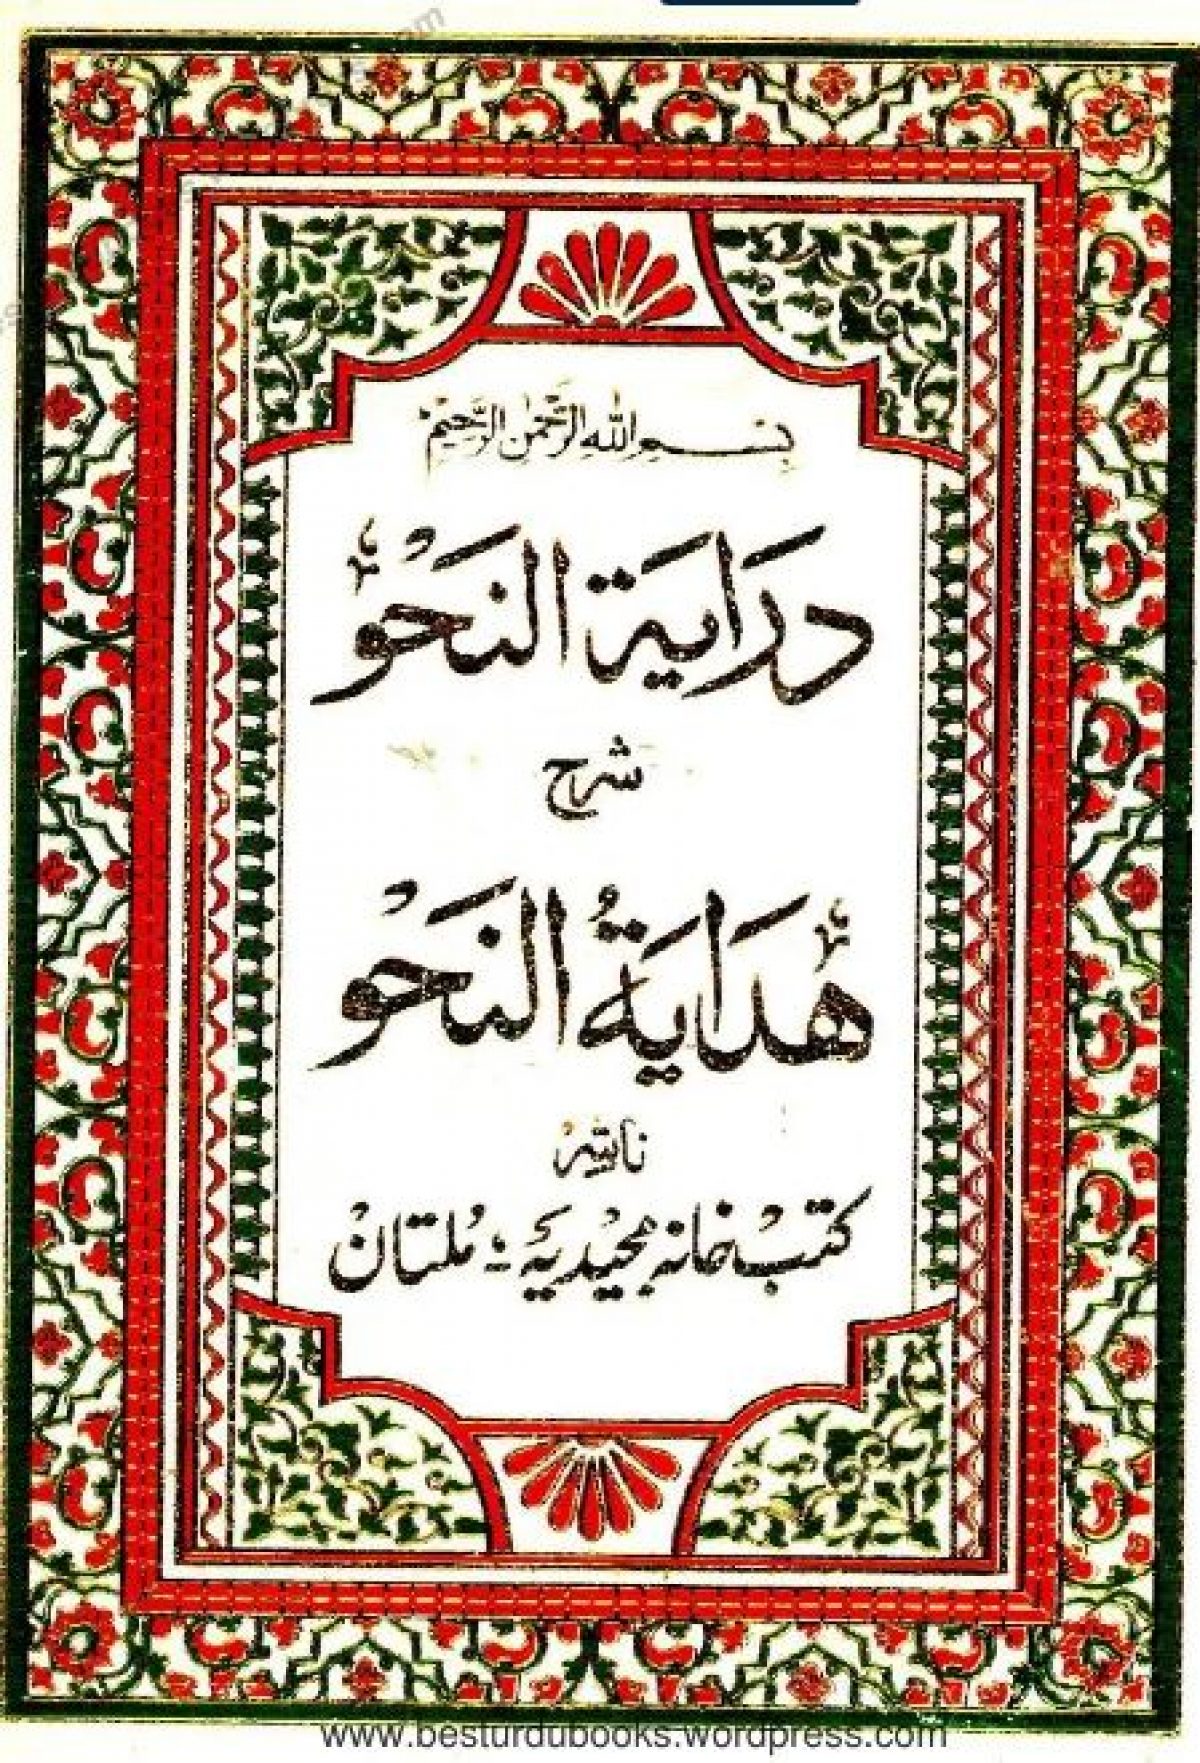 بسم الله الرحمن الرحيم
دراية النحو
شرح
هداية النحو
ناشر
کتب خانہ مجیدیہ ؛ ملتان
www.besturdubooks.wordpress.com